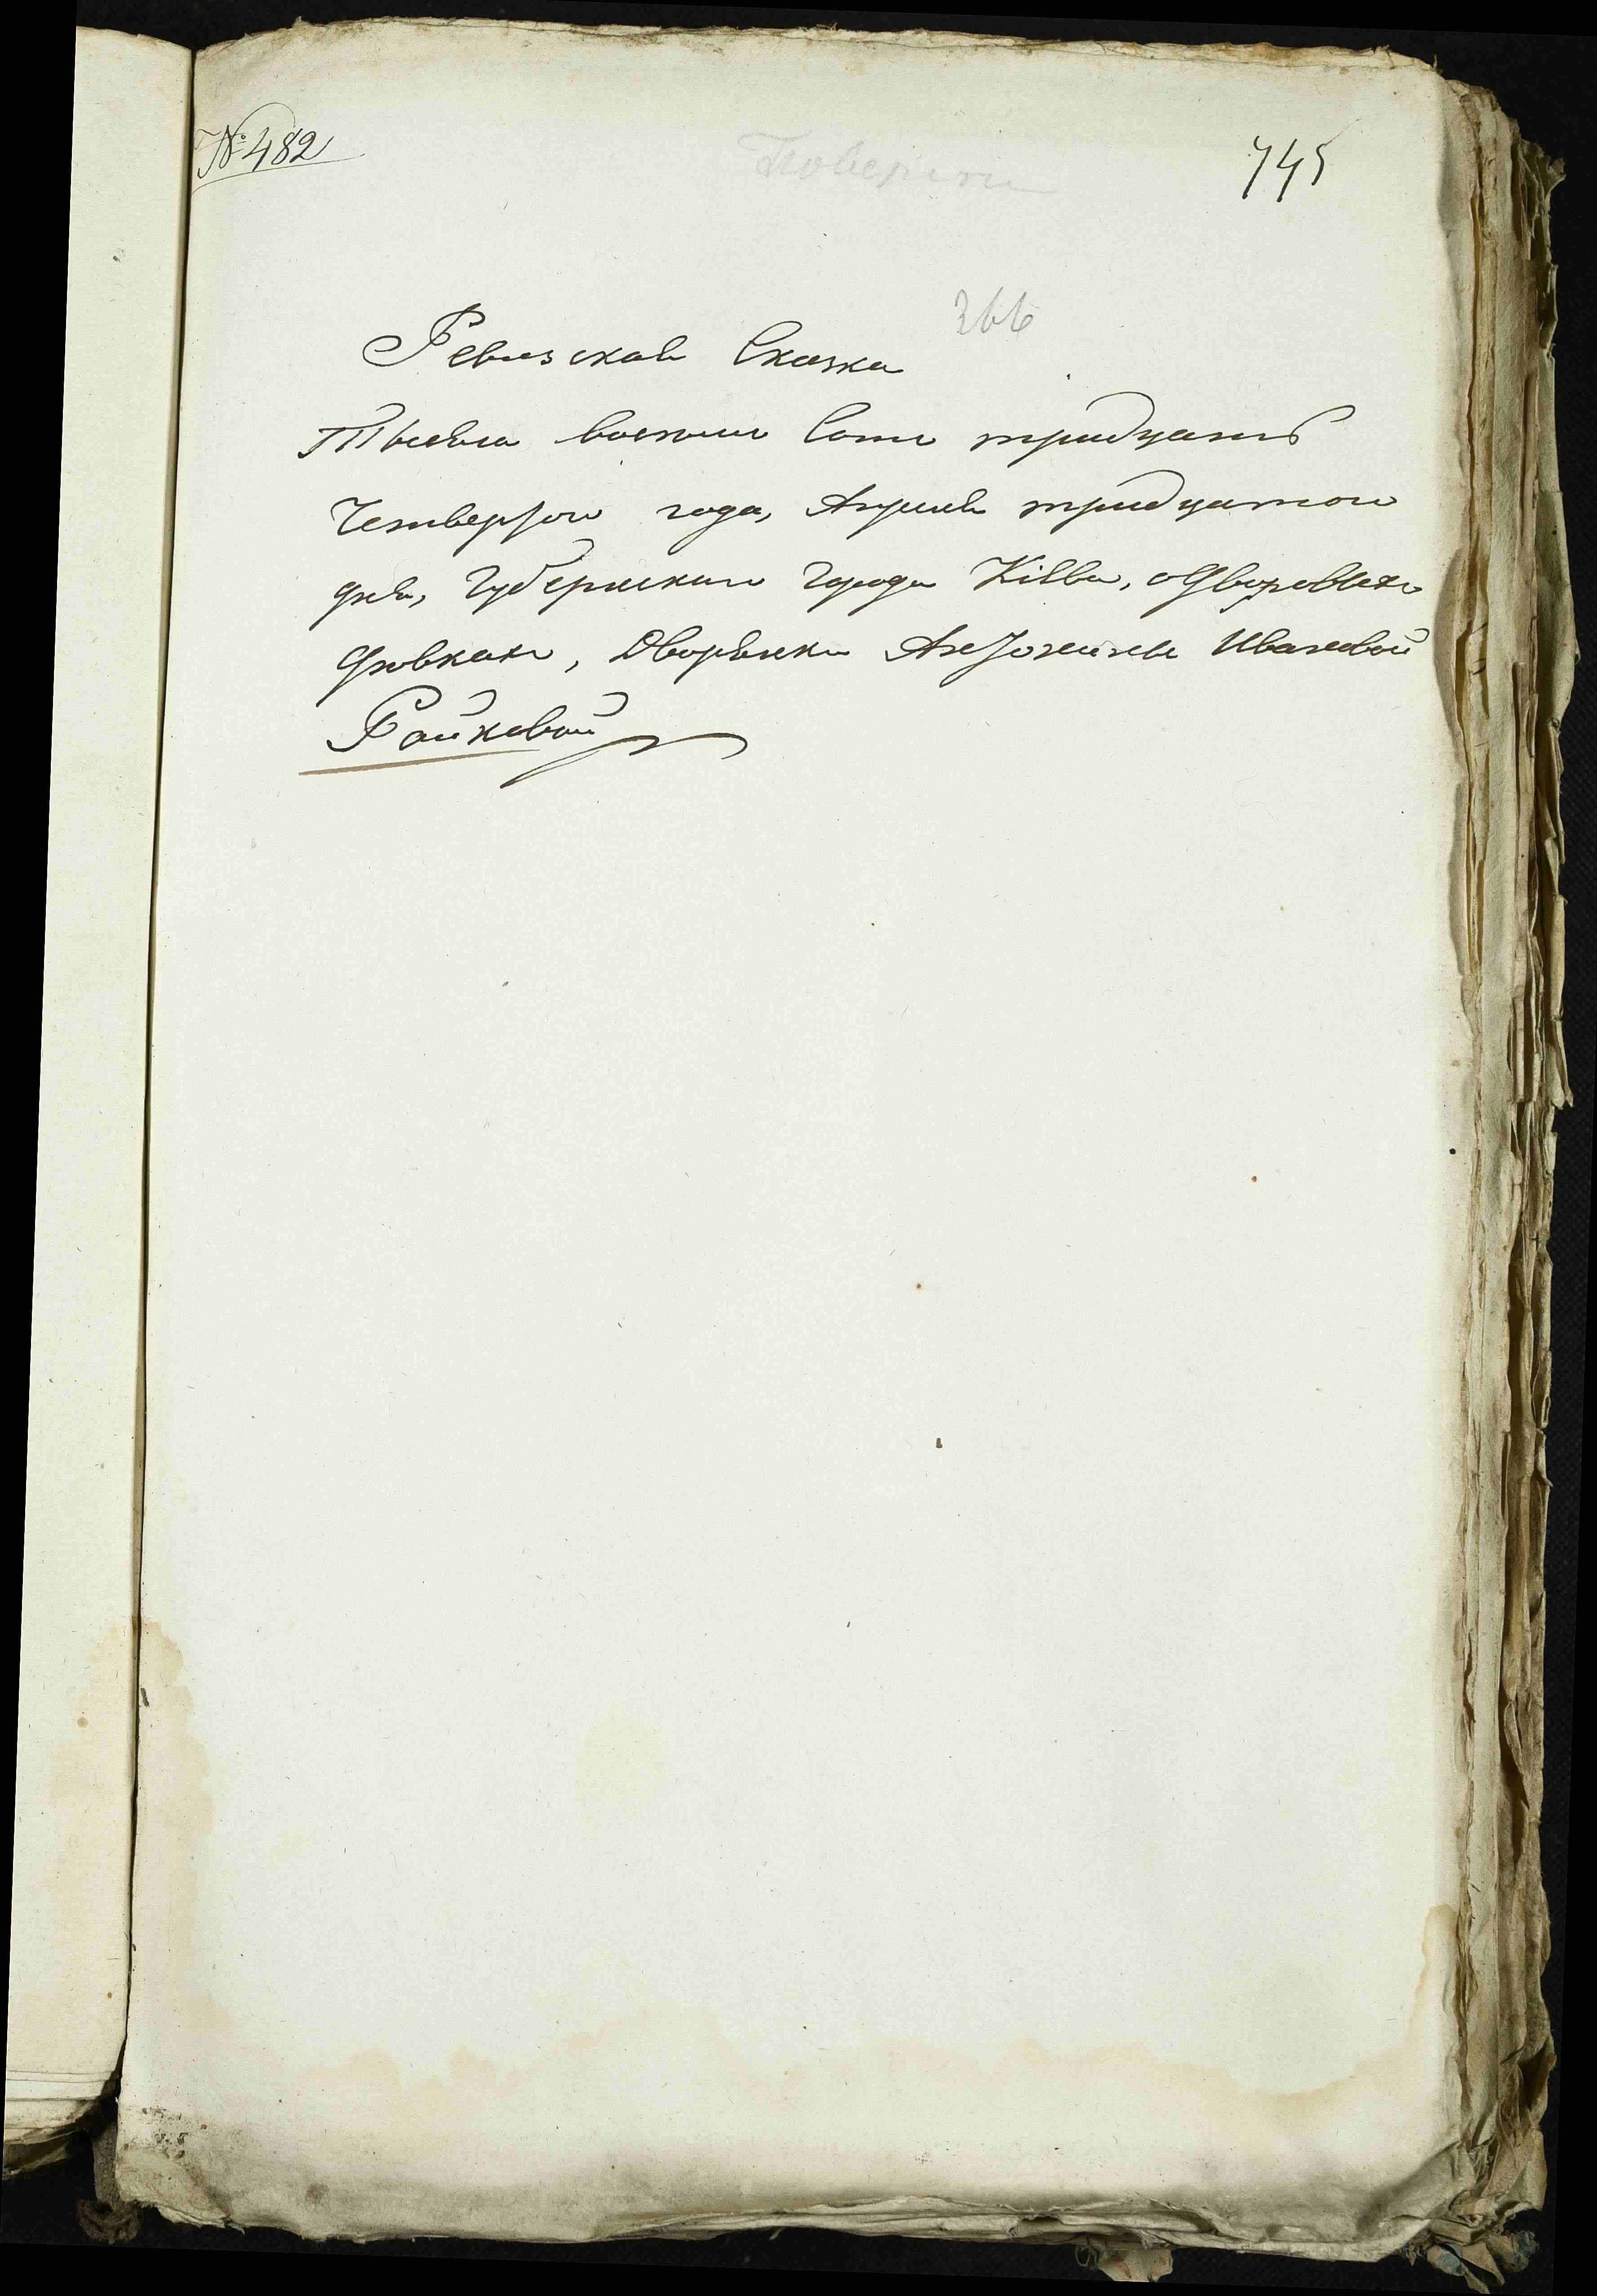 № 482
Поверить
745
366
Ревизская Сказка
Тысяча восемь Сотъ тридцать
Четвертого года, Апреля тридцатого
дня, Губернскаго Города Кіева, о дворовыхъ
дювкахъ, Дворянки Ивановой
Райковой